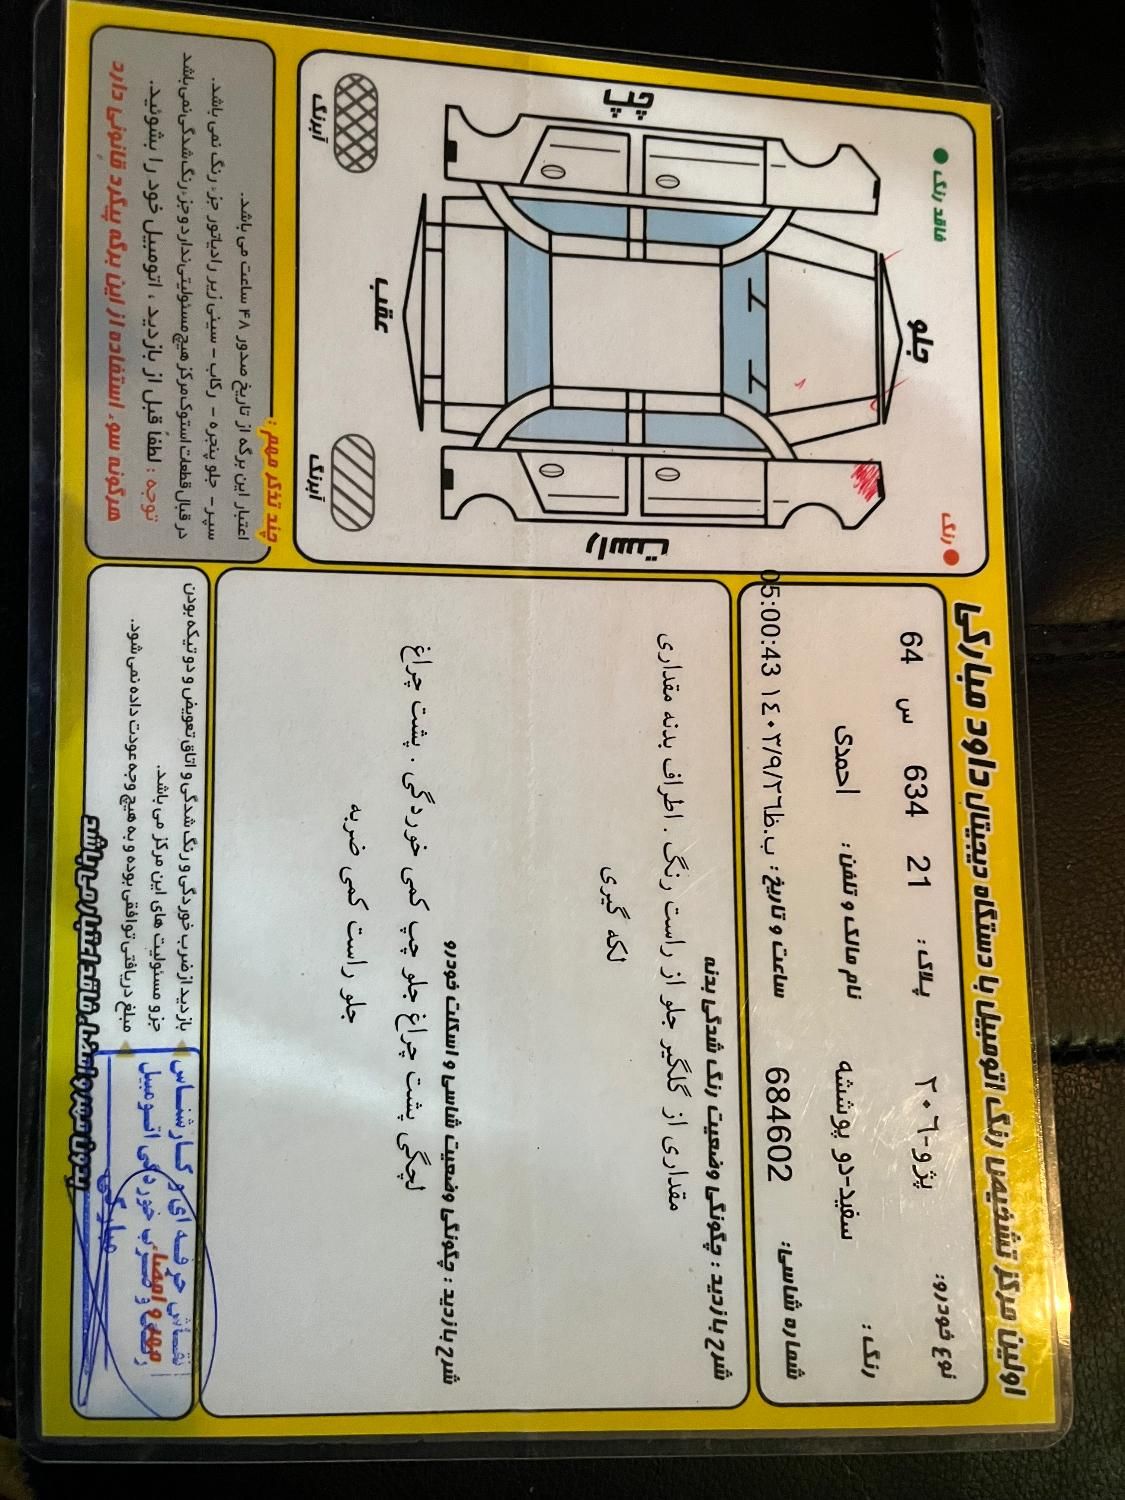 اولین مرکز تشخیص رنگ اتومبیل با دستگاه دیجیتال داود مبارکی
نوع خودرو: پژو-۲۰۶ پلاک: 21 634 س 64
رنگ: سفید-دو پوششه نام مالک و تلفن: احمدی
شماره شاسی: 684602 ساعت و تاریخ: ب.ظ ۱٤۰۳/۹/۲٦ 05:00:43
شرح بازدید: چگونگی وضعیت رنگ شدگی بدنه
مقداری از گلگیر جلو از راست رنگ. اطراف بدنه مقداری
لکه گیری
شرح بازدید: چگونگی وضعیت شاسی و اسکلت خودرو
لچگی پشت چراغ جلو چپ کمی خوردگی. پشت چراغ
جلو راست کمی ضربه
بازدید از ضرب خوردگی و رنگ شدگی و اتاق تعویض و دو تیکه بودن
جزو مسئولیت های این مرکز می باشد.
مبلغ دریافتی توافقی بوده و به هیچ وجه عودت داده نمی شود.
مهر و امضاء
نقـاش حرفـه ای و کـارشنـاس
خوردگی اتـومبیل
مبارکی
بدون مهر و امضاء فاقد اعتبار می باشد
فاقد رنگ
رنگ
جلو
چپ
راست
عقب
آبرنگ
آبرنگ
چند تذکر مهم:
اعتبار این برگه از تاریخ صدور ۴۸ ساعت می باشد.
سپر - جلو پنجره - رکاب - سینی زیر رادیاتور جزء رنگ نمی باشد.
در قبال قطعات استوک مرکز هیچ مسئولیتی ندارد و جزء رنگ شدگی نمی باشد
توجه: لطفاً قبل از بازدید، اتومبیل خود را بشوئید.
هرگونه سوء استفاده از این برگه پیگرد قانونی دارد